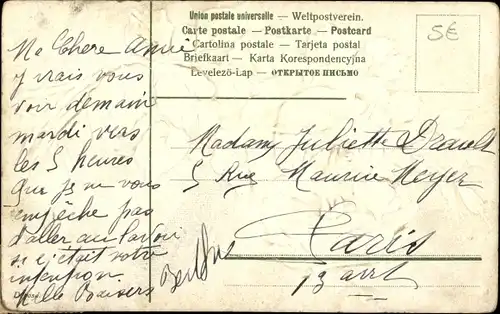 Union postale universelle — Weltpostverein.
Carte postale — Postkarte — Postcard
Cartolina postale — Tarjeta postal
Briefkaart — Karta Korespondencyjna
Levelező-Lap — ОТКРЫТОЕ ПИСЬМО
5€
Ma Chere Amie
j irais vous
voir demain
mardi vers
les 5 heures
Que je ne vous
empêche pas
d'aller au
si c'était votre
intention
Mille Baisers
Madame Juliette Drault
5 Rue Maurice Meyer
Paris
13 arrt